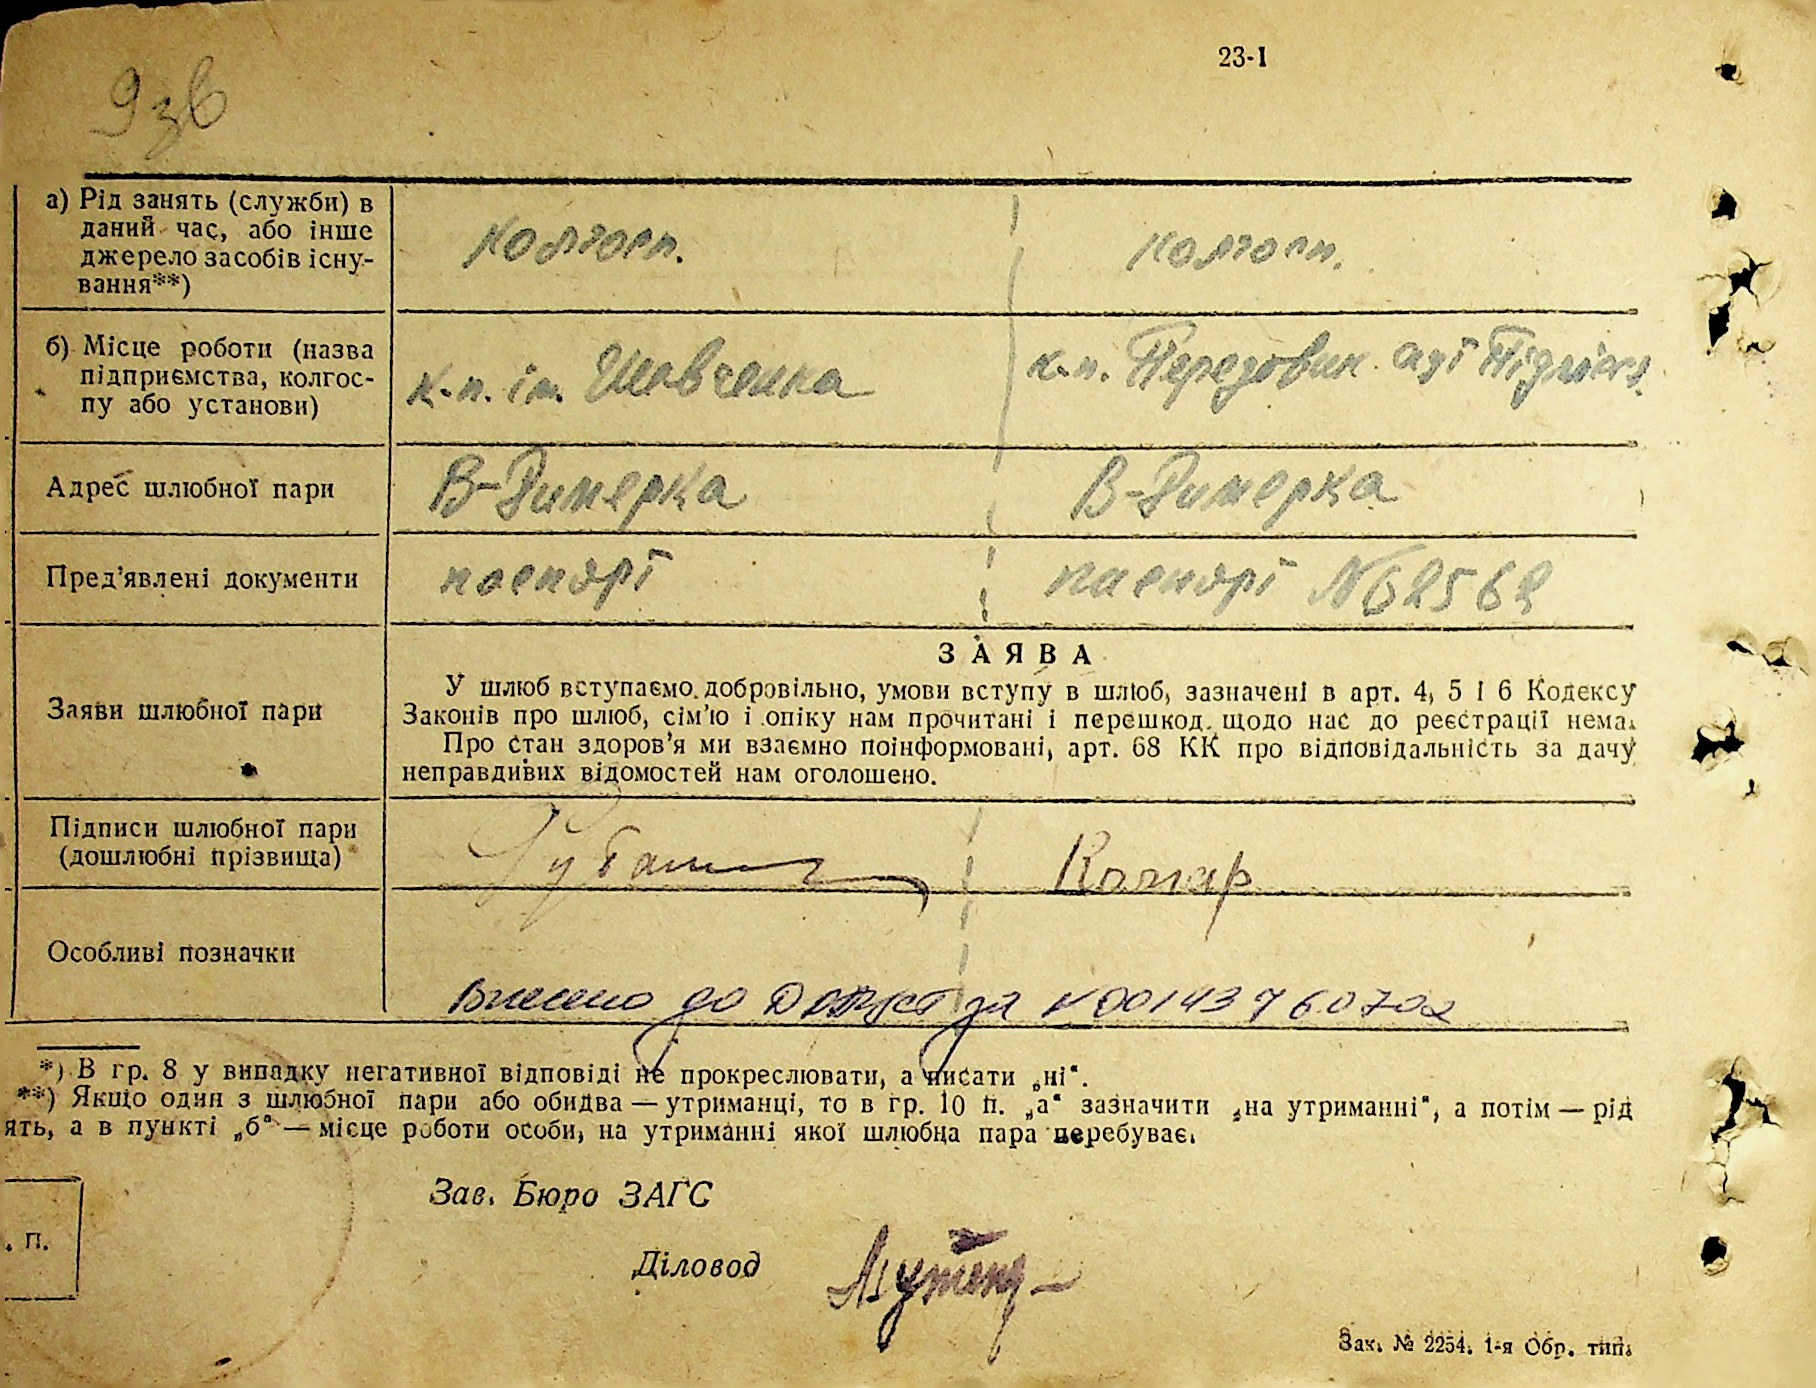 23-І
а) Рід занять (служби) в
даний час, або інше
джерело засобів існу-
вання**)
колгосп.
колгосп.
б) Місце роботи (назва
підприємства, колгос-
пу або установи)
к.п. ім. Шевченка
к.п. Передовик
Адрес шлюбної пари
В-Димерка
В-Димерка
Пред’явлені документи
паспорт
паспорт №62562
Заяви шлюбної пари
ЗАЯВА
У шлюб вступаємо добровільно, умови вступу в шлюб, зазначені в арт. 4, 5 і 6 Кодексу
Законів про шлюб, сім’ю і опіку нам прочитані і перешкод щодо нас до реєстрації нема.
Про стан здоров’я ми взаємно поінформовані, арт. 68 КК про відповідальність за дачу
неправдивих відомостей нам оголошено.
Підписи шлюбної пари
(дошлюбні прізвища)
Особливі позначки
Внесено до ДРАЦСГ за №00143760702
*) В гр. 8 у випадку негативної відповіді не прокреслювати, а писати „ні“.
**) Якщо один з шлюбної пари або обидва — утриманці, то в гр. 10 п. „а“ зазначити „на утриманні“, а потім — рід
ять, а в пункті „б“ — місце роботи особи, на утриманні якої шлюбна пара перебуває.
Зав. Бюро ЗАГС
. П.
Діловод
Зак. № 2254. 1-я Обр. тип.